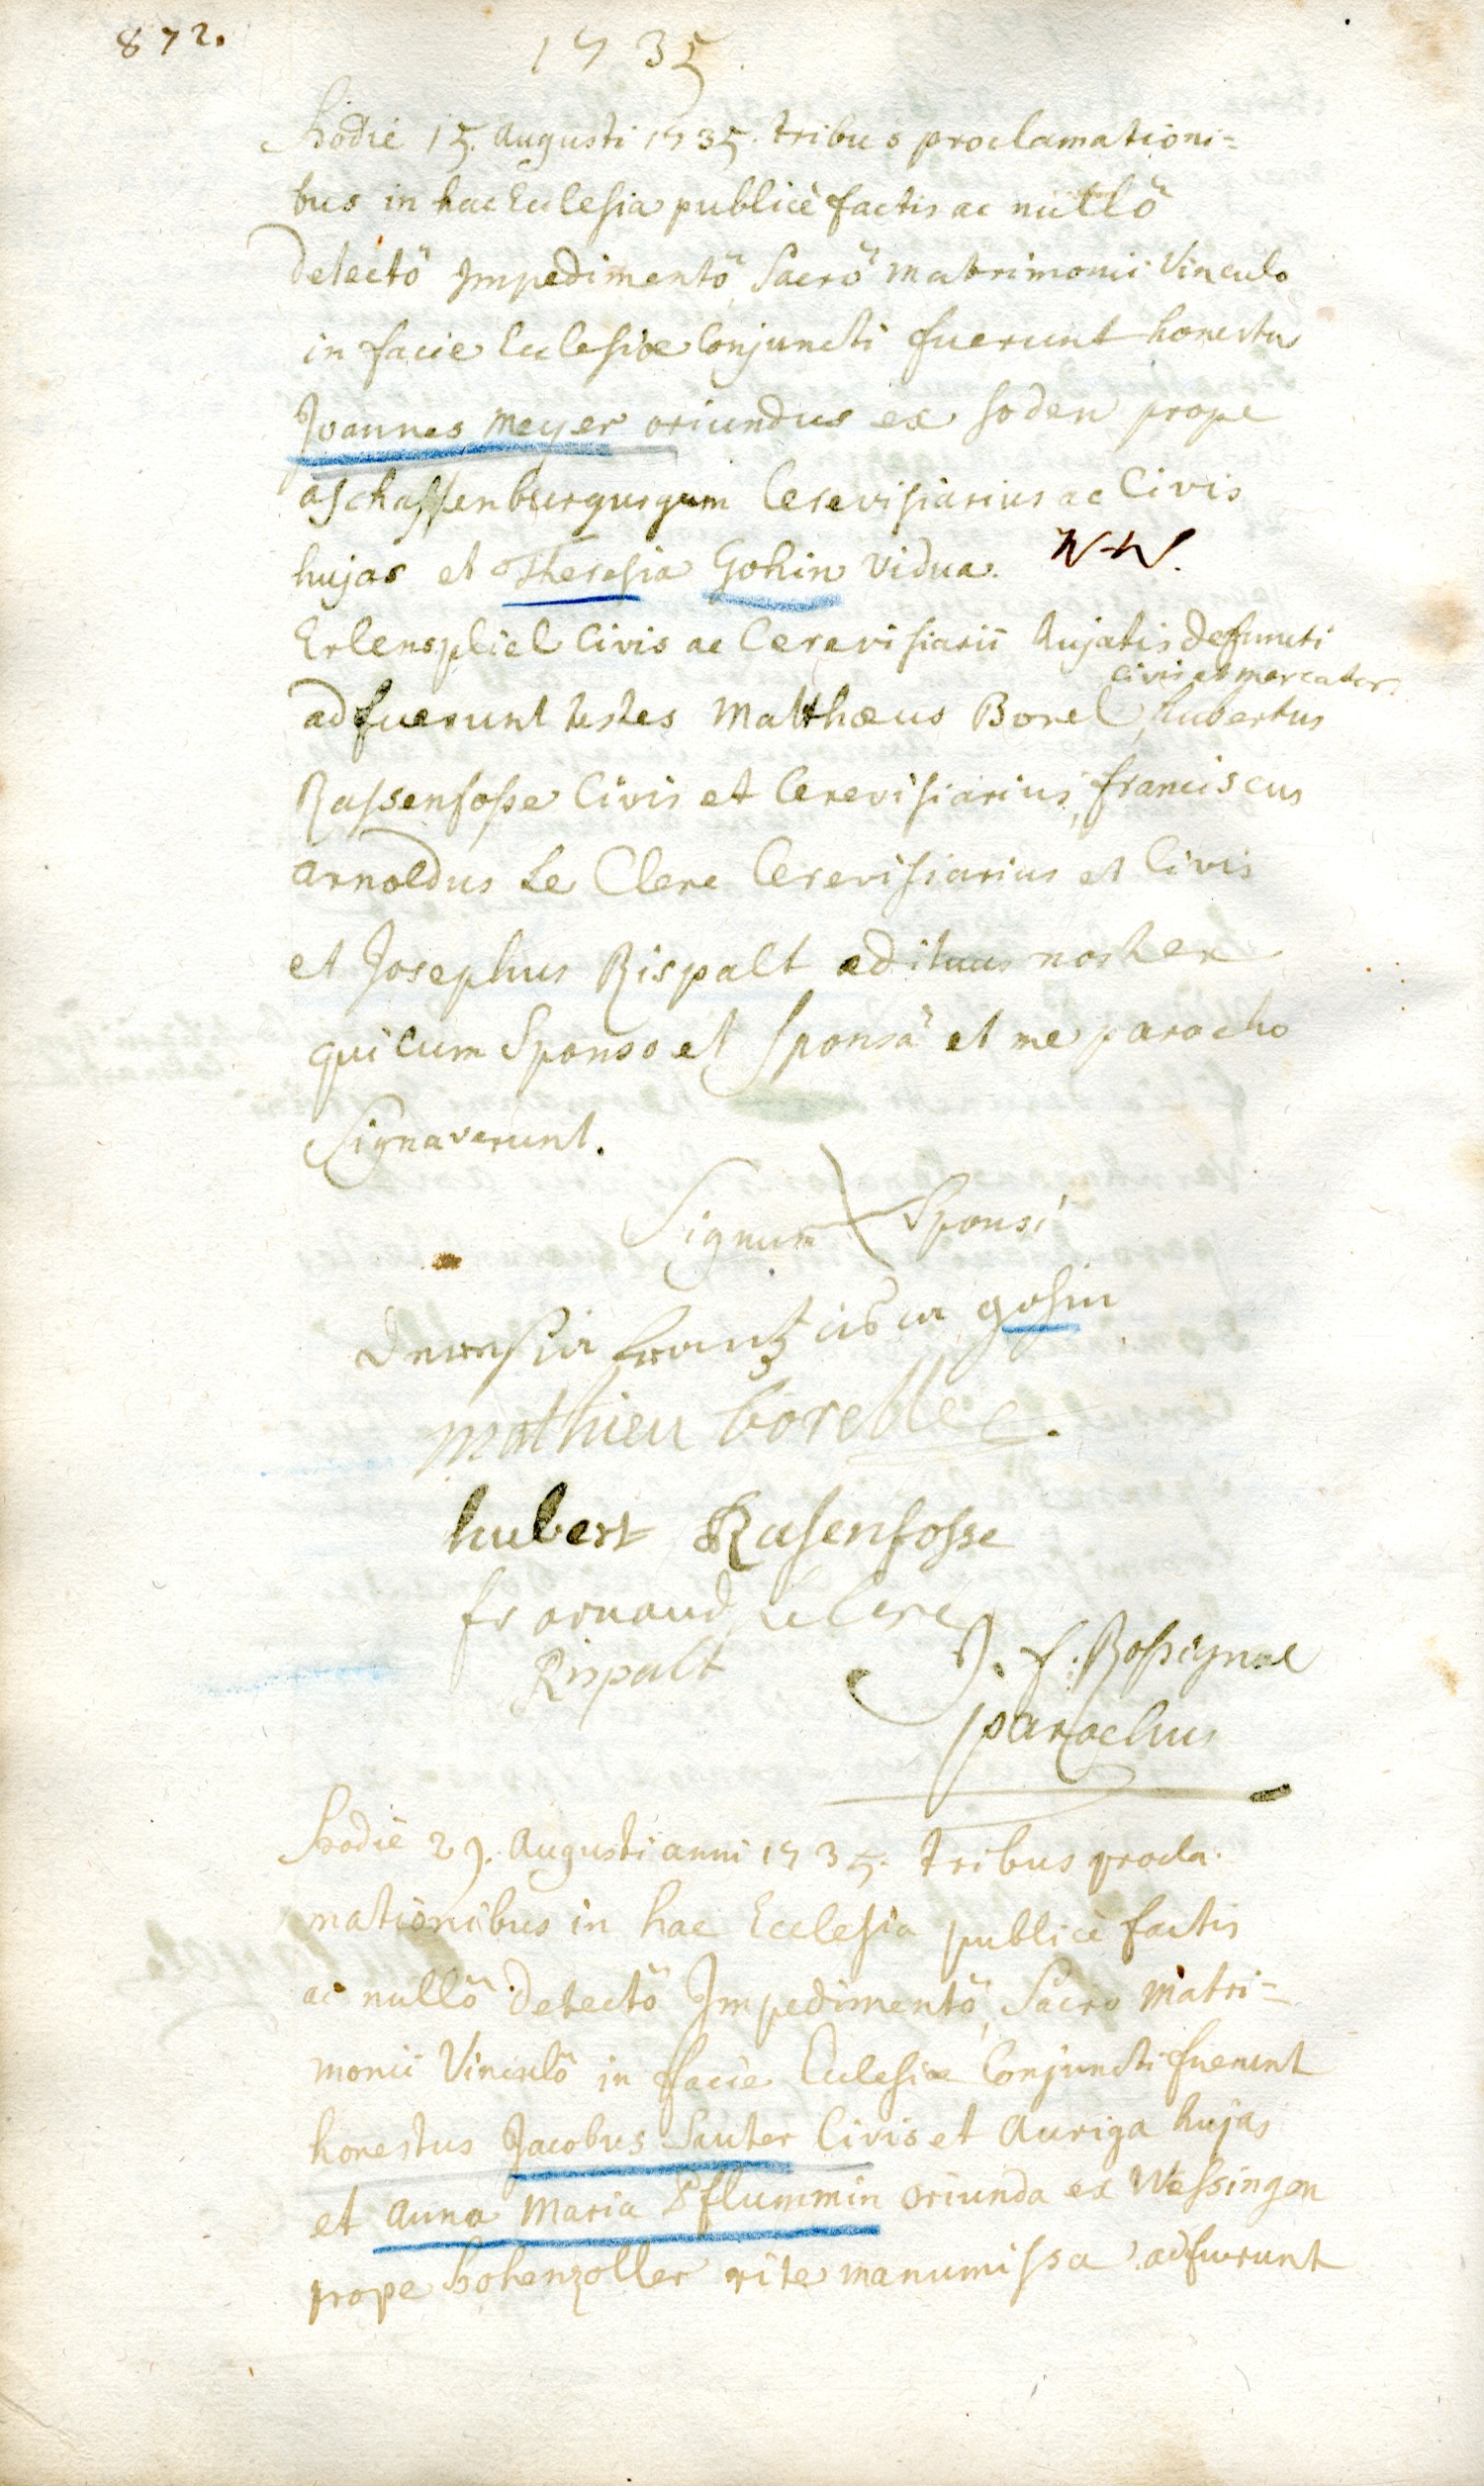 872.
1735.
hodie 15. Augusti 1735. tribus proclamationi=
bus in hac Ecclesia publicè factis ac nullô
detectô Impedimentô, Sacrô matrimonii Vinculo
in facie Ecclesiæ Conjuncti fuerunt honestus
Joannes Meyer oriundus ex Soden prope
aschaffenburgurgum Cerevisiarius ac Civis
hujas et Theresia Gohin vidua. N-N.
Erlenspliel Civis ac Cerevisiarii hujatis defuncti
civis et mercator.
adfuerunt testes Matthæus Borel, hubertus
Rassenfosse Civis et Cerevisiarius, franciscus
arnoldus Le Clerc Cerevisiarius et Civis
et Josephus Rispalt ædituus noster
qui cum Sponso et Sponsâ et me parocho
Signaverunt.
Signum X Sponsi
gohin
mathieu borelle
hubert Rasenfosse
fr arnaud Leclerc
Rispalt
J. f. Rossignol
parochus
hodiè 29. Augusti anni 1735. tribus procla.
mationibus in hac Ecclesia publicè factis
ac nullô detectô Impedimentô, Sacro Matri=
monii Vinculô in facie Ecclesiæ Conjuncti fuerunt
honestus Jacobus Sauter Civis et Auriga hujas
et Anna Maria Pflummin oriunda ex Wessingen
prope hohenzoller rite manumissa. adfuerunt